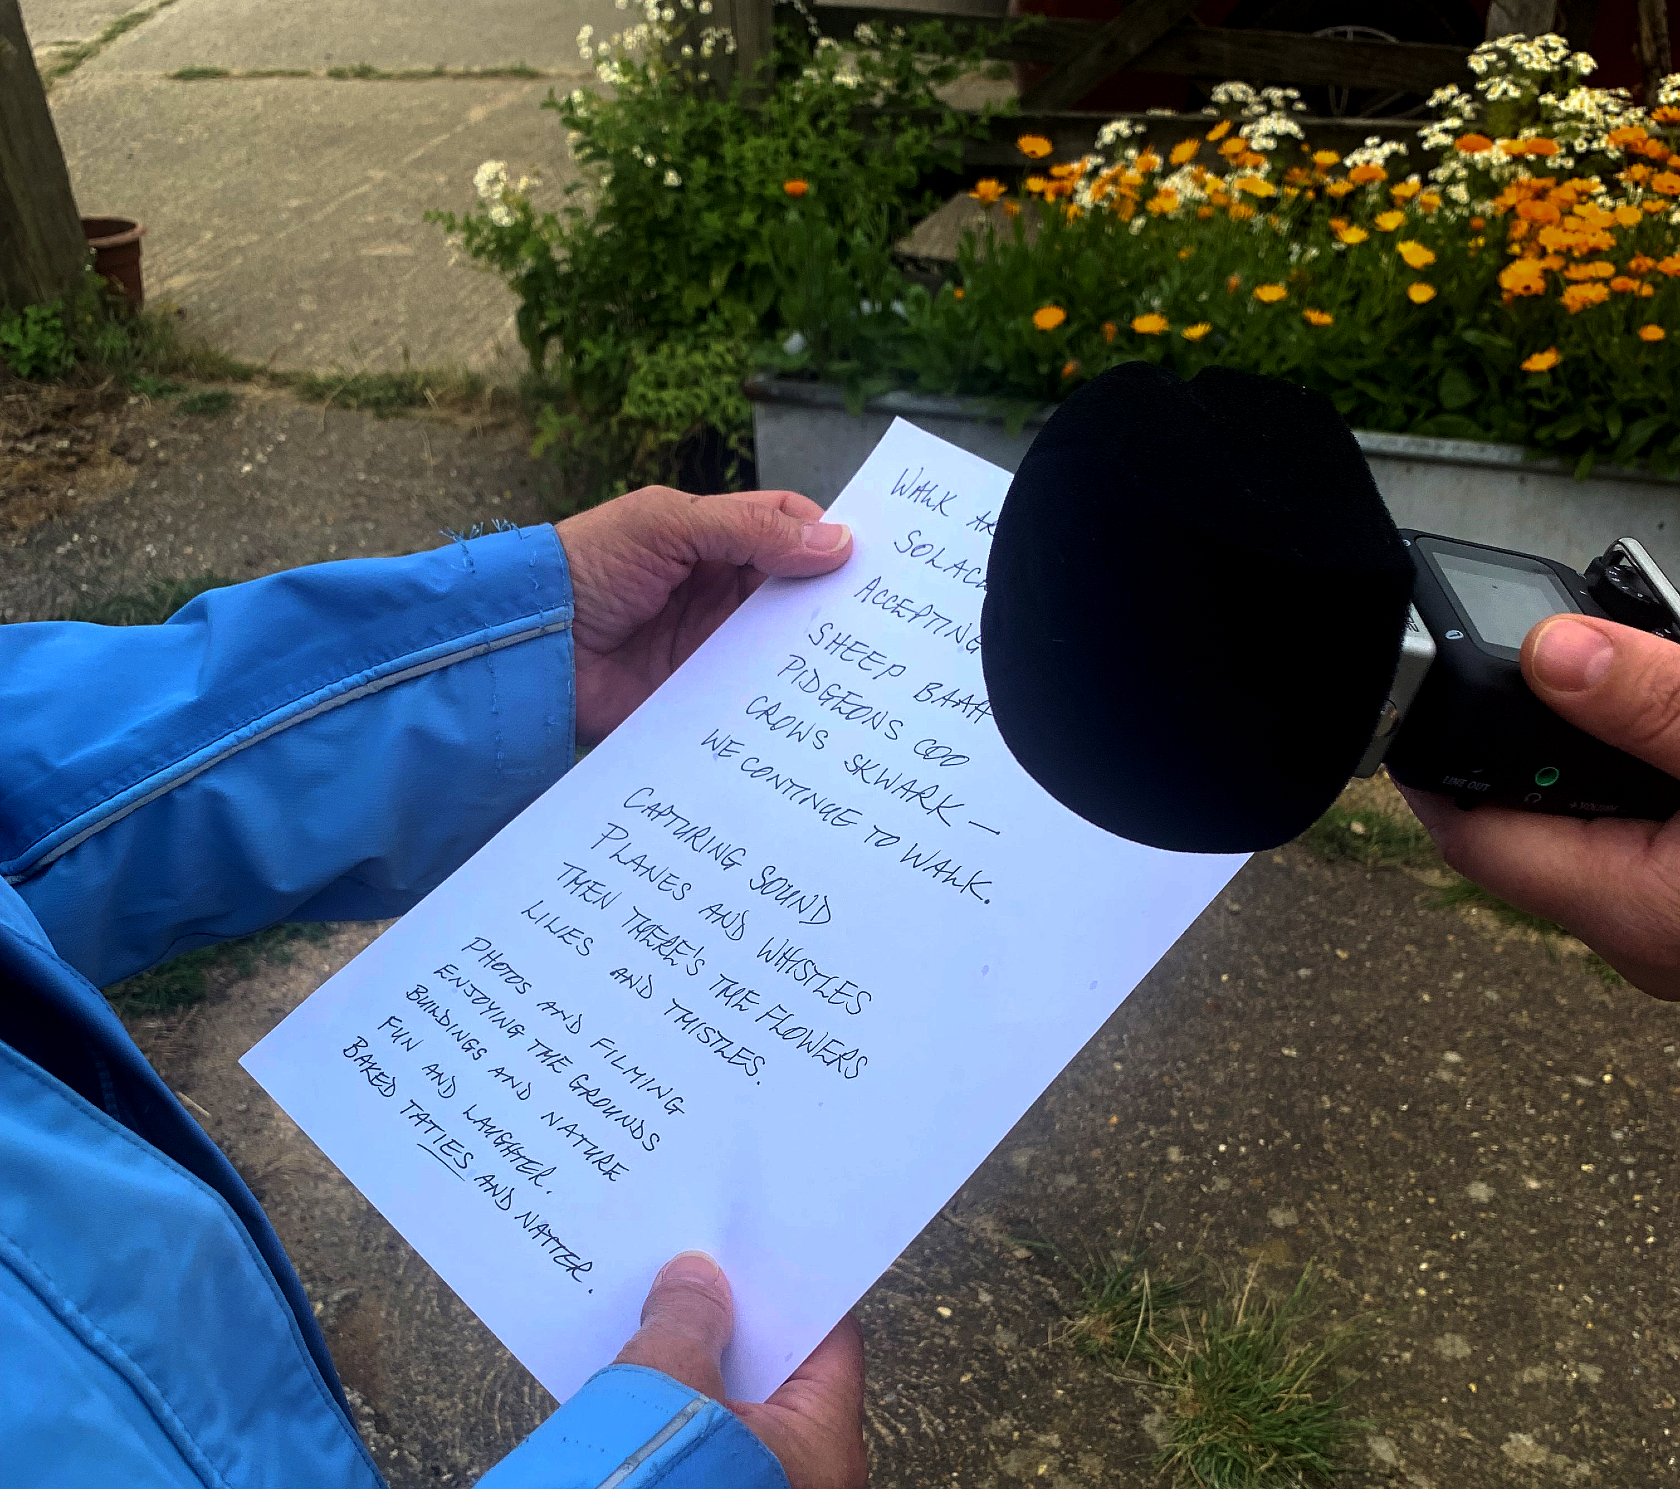 WALK
ACCEPTING
SHEEP BAAH
PIDGEONS COO
CROWS SKWARK —
WE CONTINUE TO WALK.
CAPTURING SOUND
PLANES AND WHISTLES
THEN THERE'S THE FLOWERS
LILIES AND THISTLES.
PHOTOS AND FILMING
ENJOYING THE GROUNDS
BUILDINGS AND NATURE
FUN AND LAUGHTER.
BAKED TATIES AND NATTER.
LINE OUT